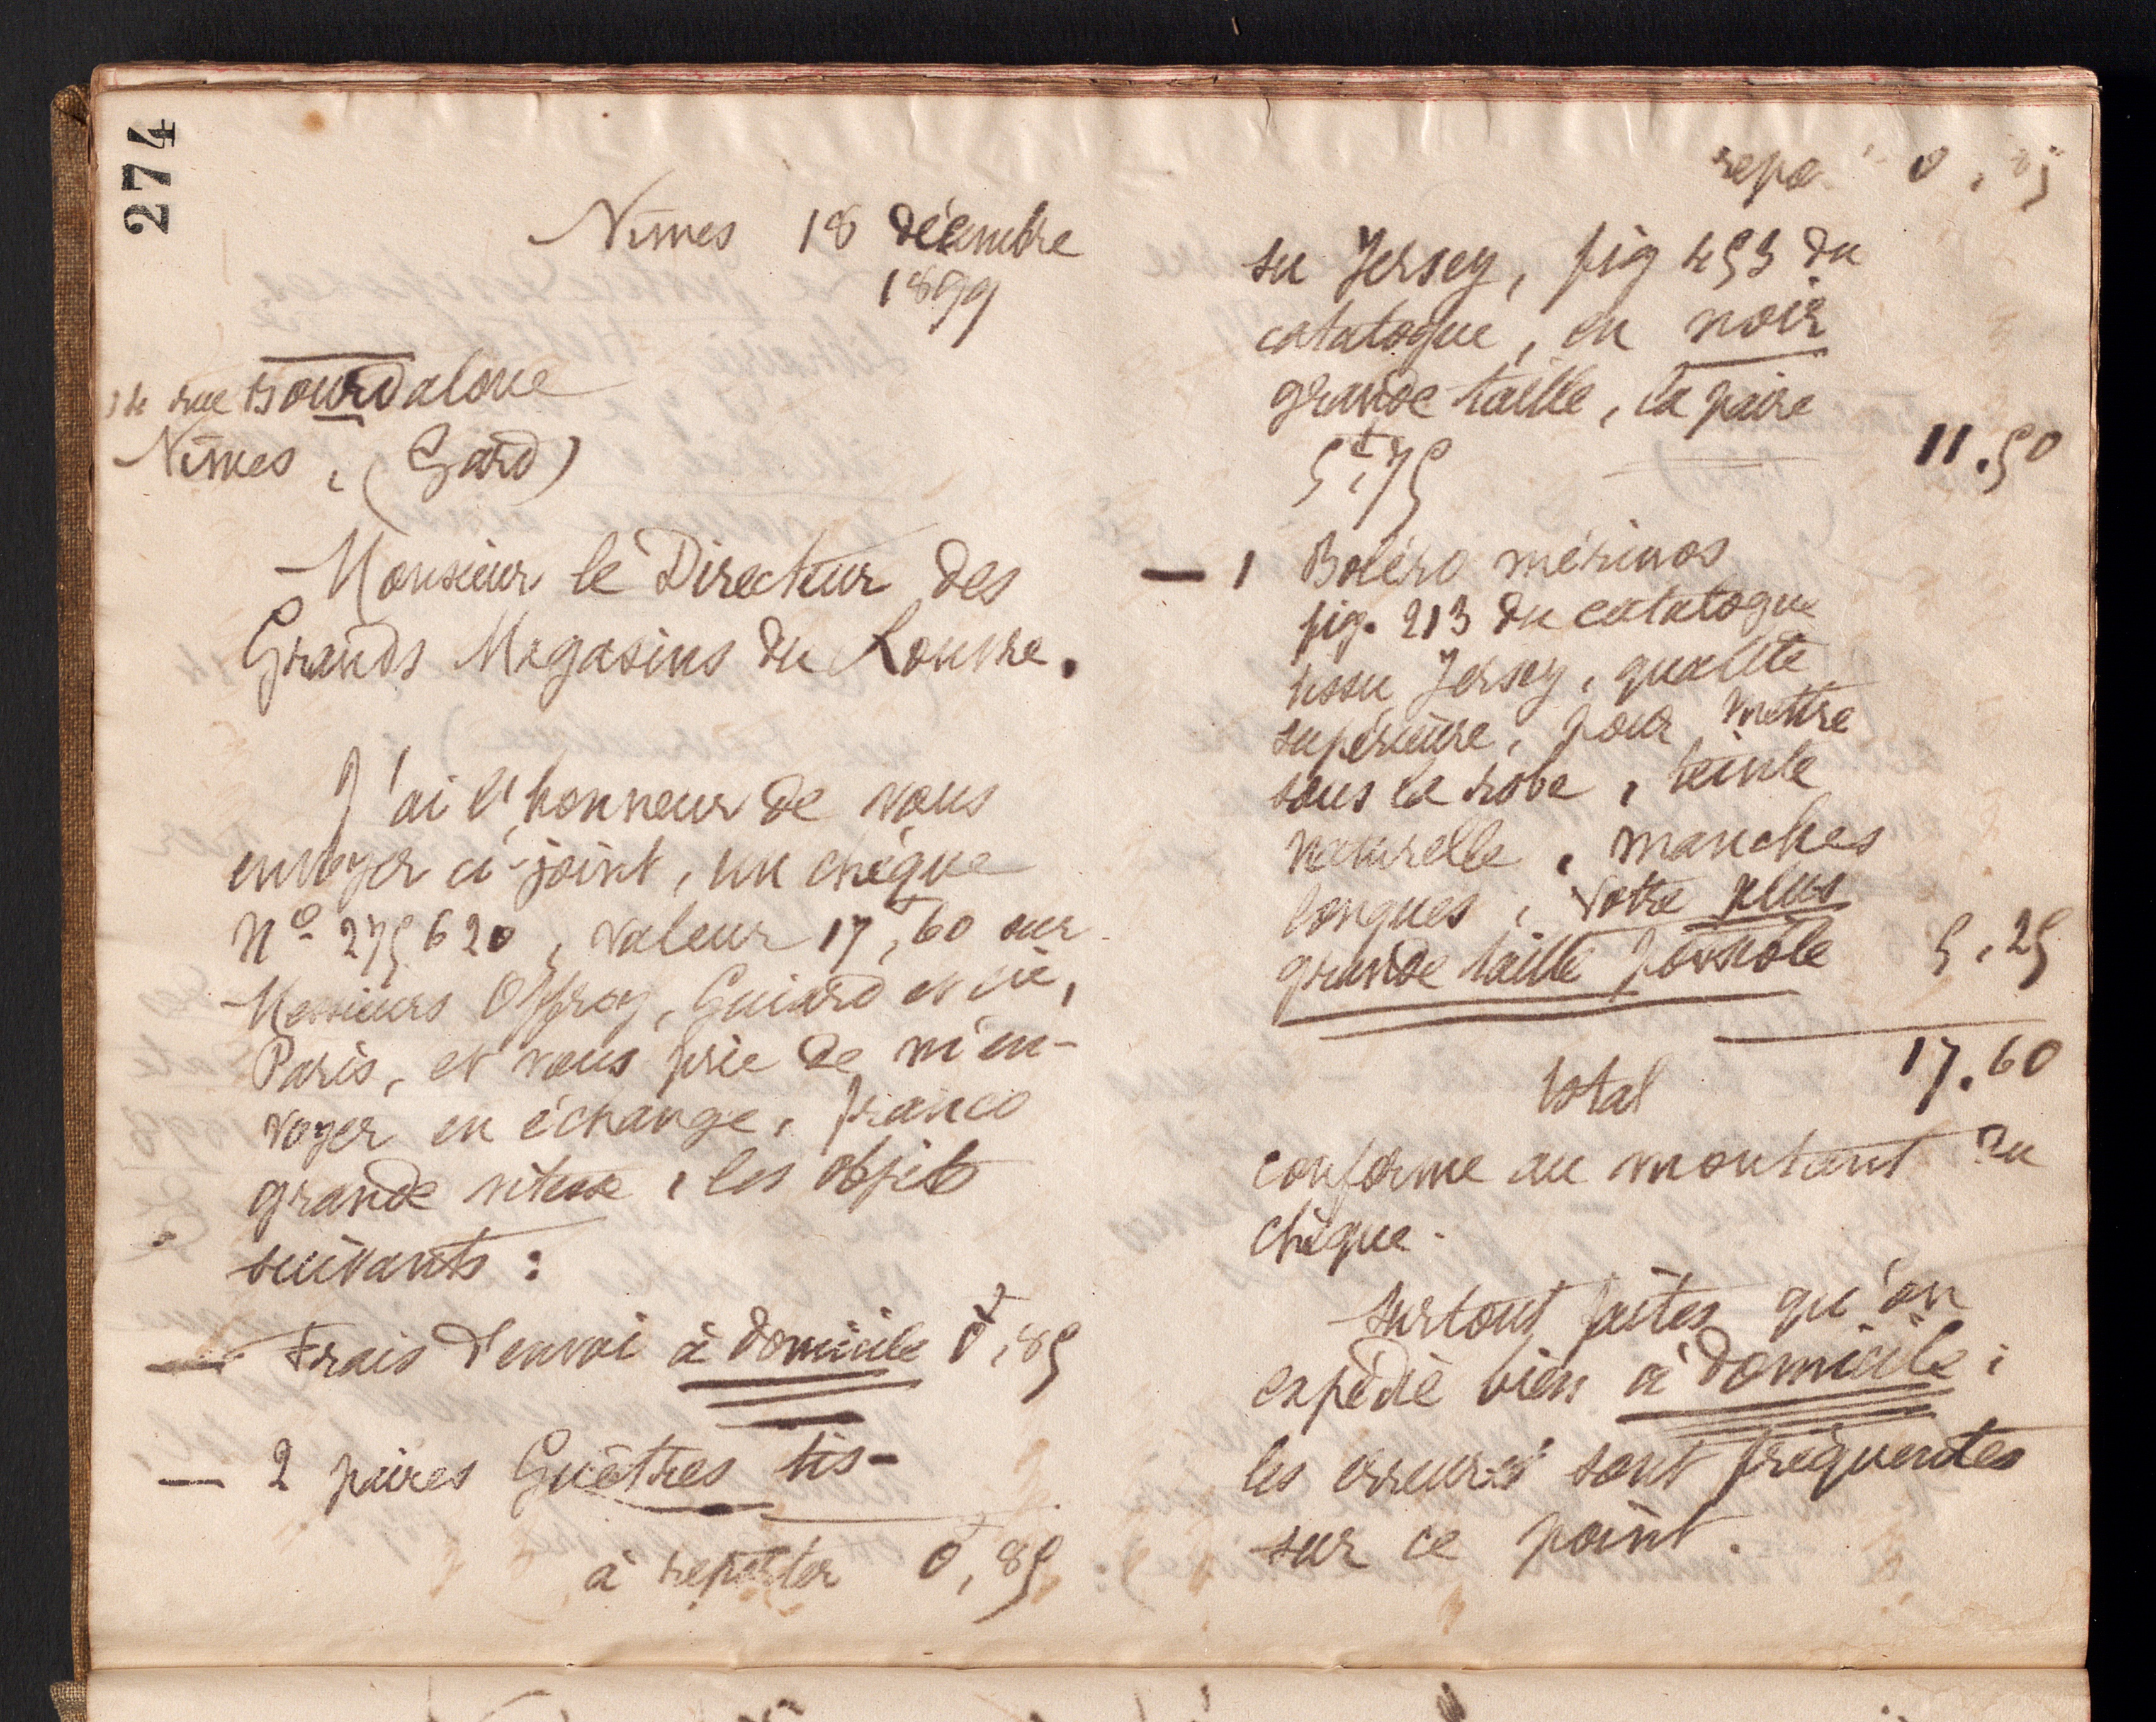 274
Nîmes 18 décembre
1899
14 rue Bourdaloue
Nîmes, (Gard)
Monsieur le Directeur des
Grands Magasins du Louvre.
J'ai l'honneur de vous
envoyer ci-joint, un chèque
N° 275620, valeur 17f,60 sur
Messieurs Offroy, Guiard et cie,
Paris, et vous prie de m'en-
voyer en échange, franco
grande vitesse, les objets
suivants :
— Frais d'envoi à domicile 0f,85
— 2 paires Guêtres tis-
à reporter 0f,85
repor 0,85
su Jersey, fig 453 du
catalogue, en noir
grande taille, la paire
5f,75 11.50
— 1 Boléro mérinos
fig. 213 du catalogue
tissu Jersey, qualité
supérieure, pour mettre
sous la robe, teinte
naturelle, manches
longues, votre plus
grande taille possible 5,25
total 17.60
conforme au montant du
chèque.
Surtout faites qu'on
expédie bien à domicile ;
les erreurs sont fréquentes
sur ce point.